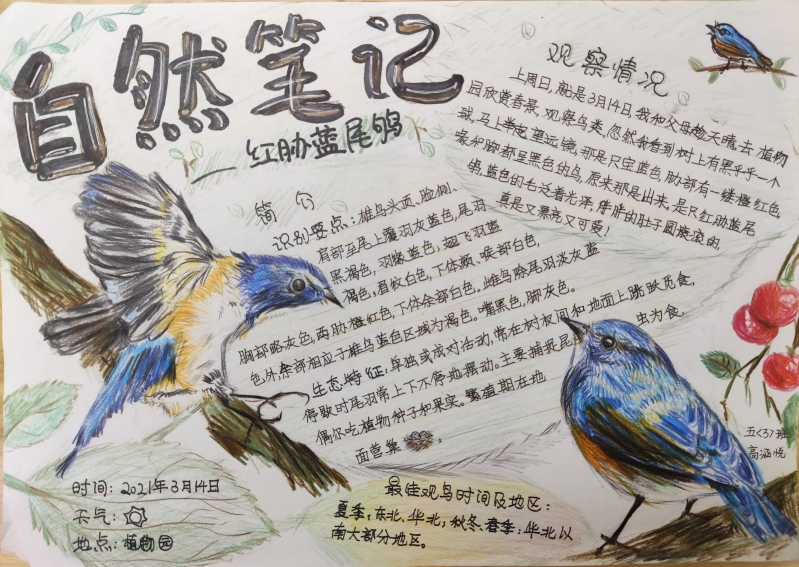 自然笔记
——红胁蓝尾鸲
观察情况
上周日,就是3月14日,我和父母趁天晴,去植物
园欣赏春景,观察鸟类,忽然我看到树上有黑乎乎一个
球,马上举起望远镜,那是只宝蓝色,胁部有一缕橙红色,
喙和脚都呈黑色的鸟,原来那是出来,是只红胁蓝尾
鸲,蓝色的毛泛着光泽,胖胖的肚子圆滚滚的
真是又漂亮又可爱!
简介
识别要点:雄鸟头顶、脸侧、
肩部至尾上覆羽灰蓝色,尾羽
黑褐色,羽缘蓝色,翅飞羽蓝
褐色,眉纹白色,下体颏、喉部白色,
胸部略灰色,两胁橙红色,下体余部白色。雌鸟除尾羽淡灰蓝
色外,余部相应于雄鸟蓝色区域为褐色。嘴黑色,脚灰色。
生态特征:单独或成对活动,常在树枝间和地面上跳跃觅食,
停歇时尾羽常上下不停地摆动。主要捕捉昆虫为食,
偶尔吃植物种子和果实。繁殖期在地
面营巢
五<3>班
高涵悦
时间:2021年3月14日
天气:
地点:植物园
最佳观鸟时间及地区:
夏季:东北、华北;秋冬、春季:华北以
南大部分地区。